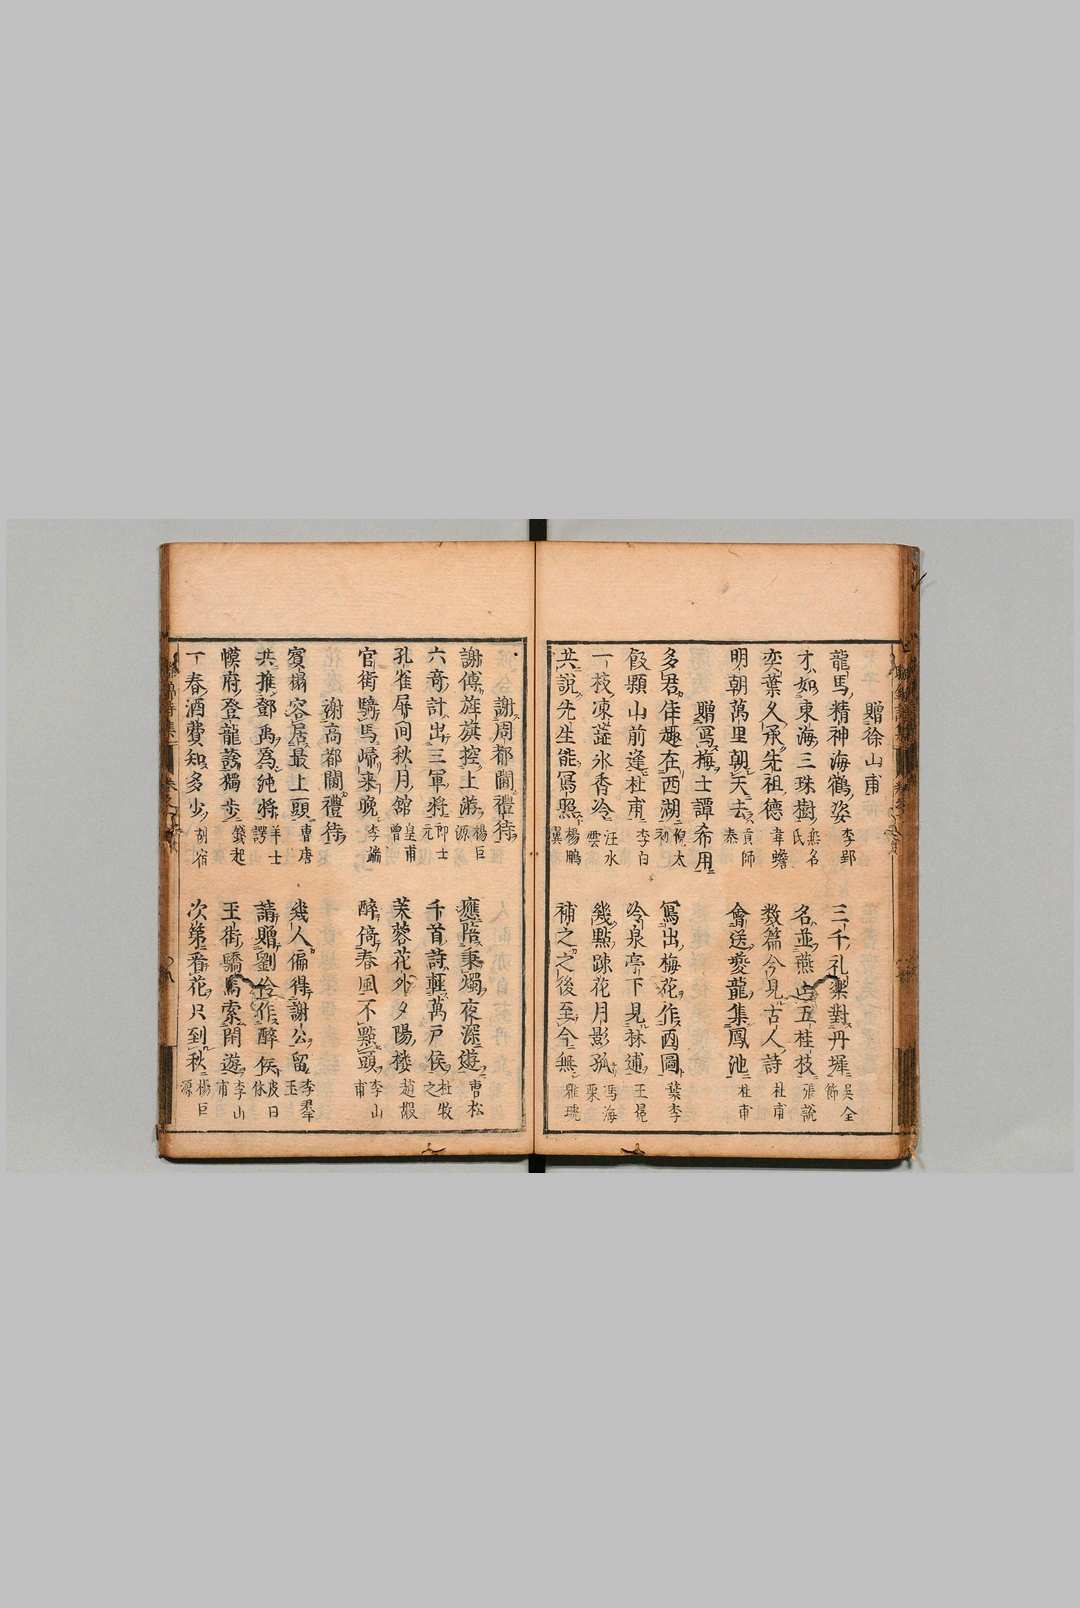 贈徐山甫
龍馬精神海鶴姿 李郢 三千礼樂對丹墀 吴全節
才如東海三珠樹 無名氏 名並燕山五桂枝 張說
奕葉久承先祖德 韋蟾 数篇今見古人詩 杜甫
明朝萬里朝天去 貢師泰 會送夔龍集鳳池 杜甫
贈寫梅士譚希用
多君佳趣在西湖 倪太初 寫出梅花作画圖 葉李
飯顆山前逢杜甫 李白 冷泉亭下見林逋 王冕
一枝凍蕋氷香冷 汪水雲 幾點踈花月影孤 馮海粟
共說先生能寫照 楊鵬翼 補之之後至今無 雅琥
謝周都閫禮待
謝傅旌旗控上游 楊巨源 應陪秉燭夜深遊 曹松
六奇計出三軍將 郎士元 千首詩輕萬戸侯 杜牧之
孔雀屏间秋月館 皇甫曾 芙蓉花外夕陽楼 趙嘏
官街騎馬歸来晚 李端 醉倚春風不點頭 李山甫
謝高都閫禮待
賓榻容居最上頭 曹唐 幾人偏得謝公留 李羣玉
共推鄧禹為純將 羊士諤 請贈劉伶作醉侯 皮日休
幙府登龍誇獨步 錢起 王街驕馬索閑遊 李山甫
一春酒費知多少 胡宿 次第看花只到秋 楊巨源